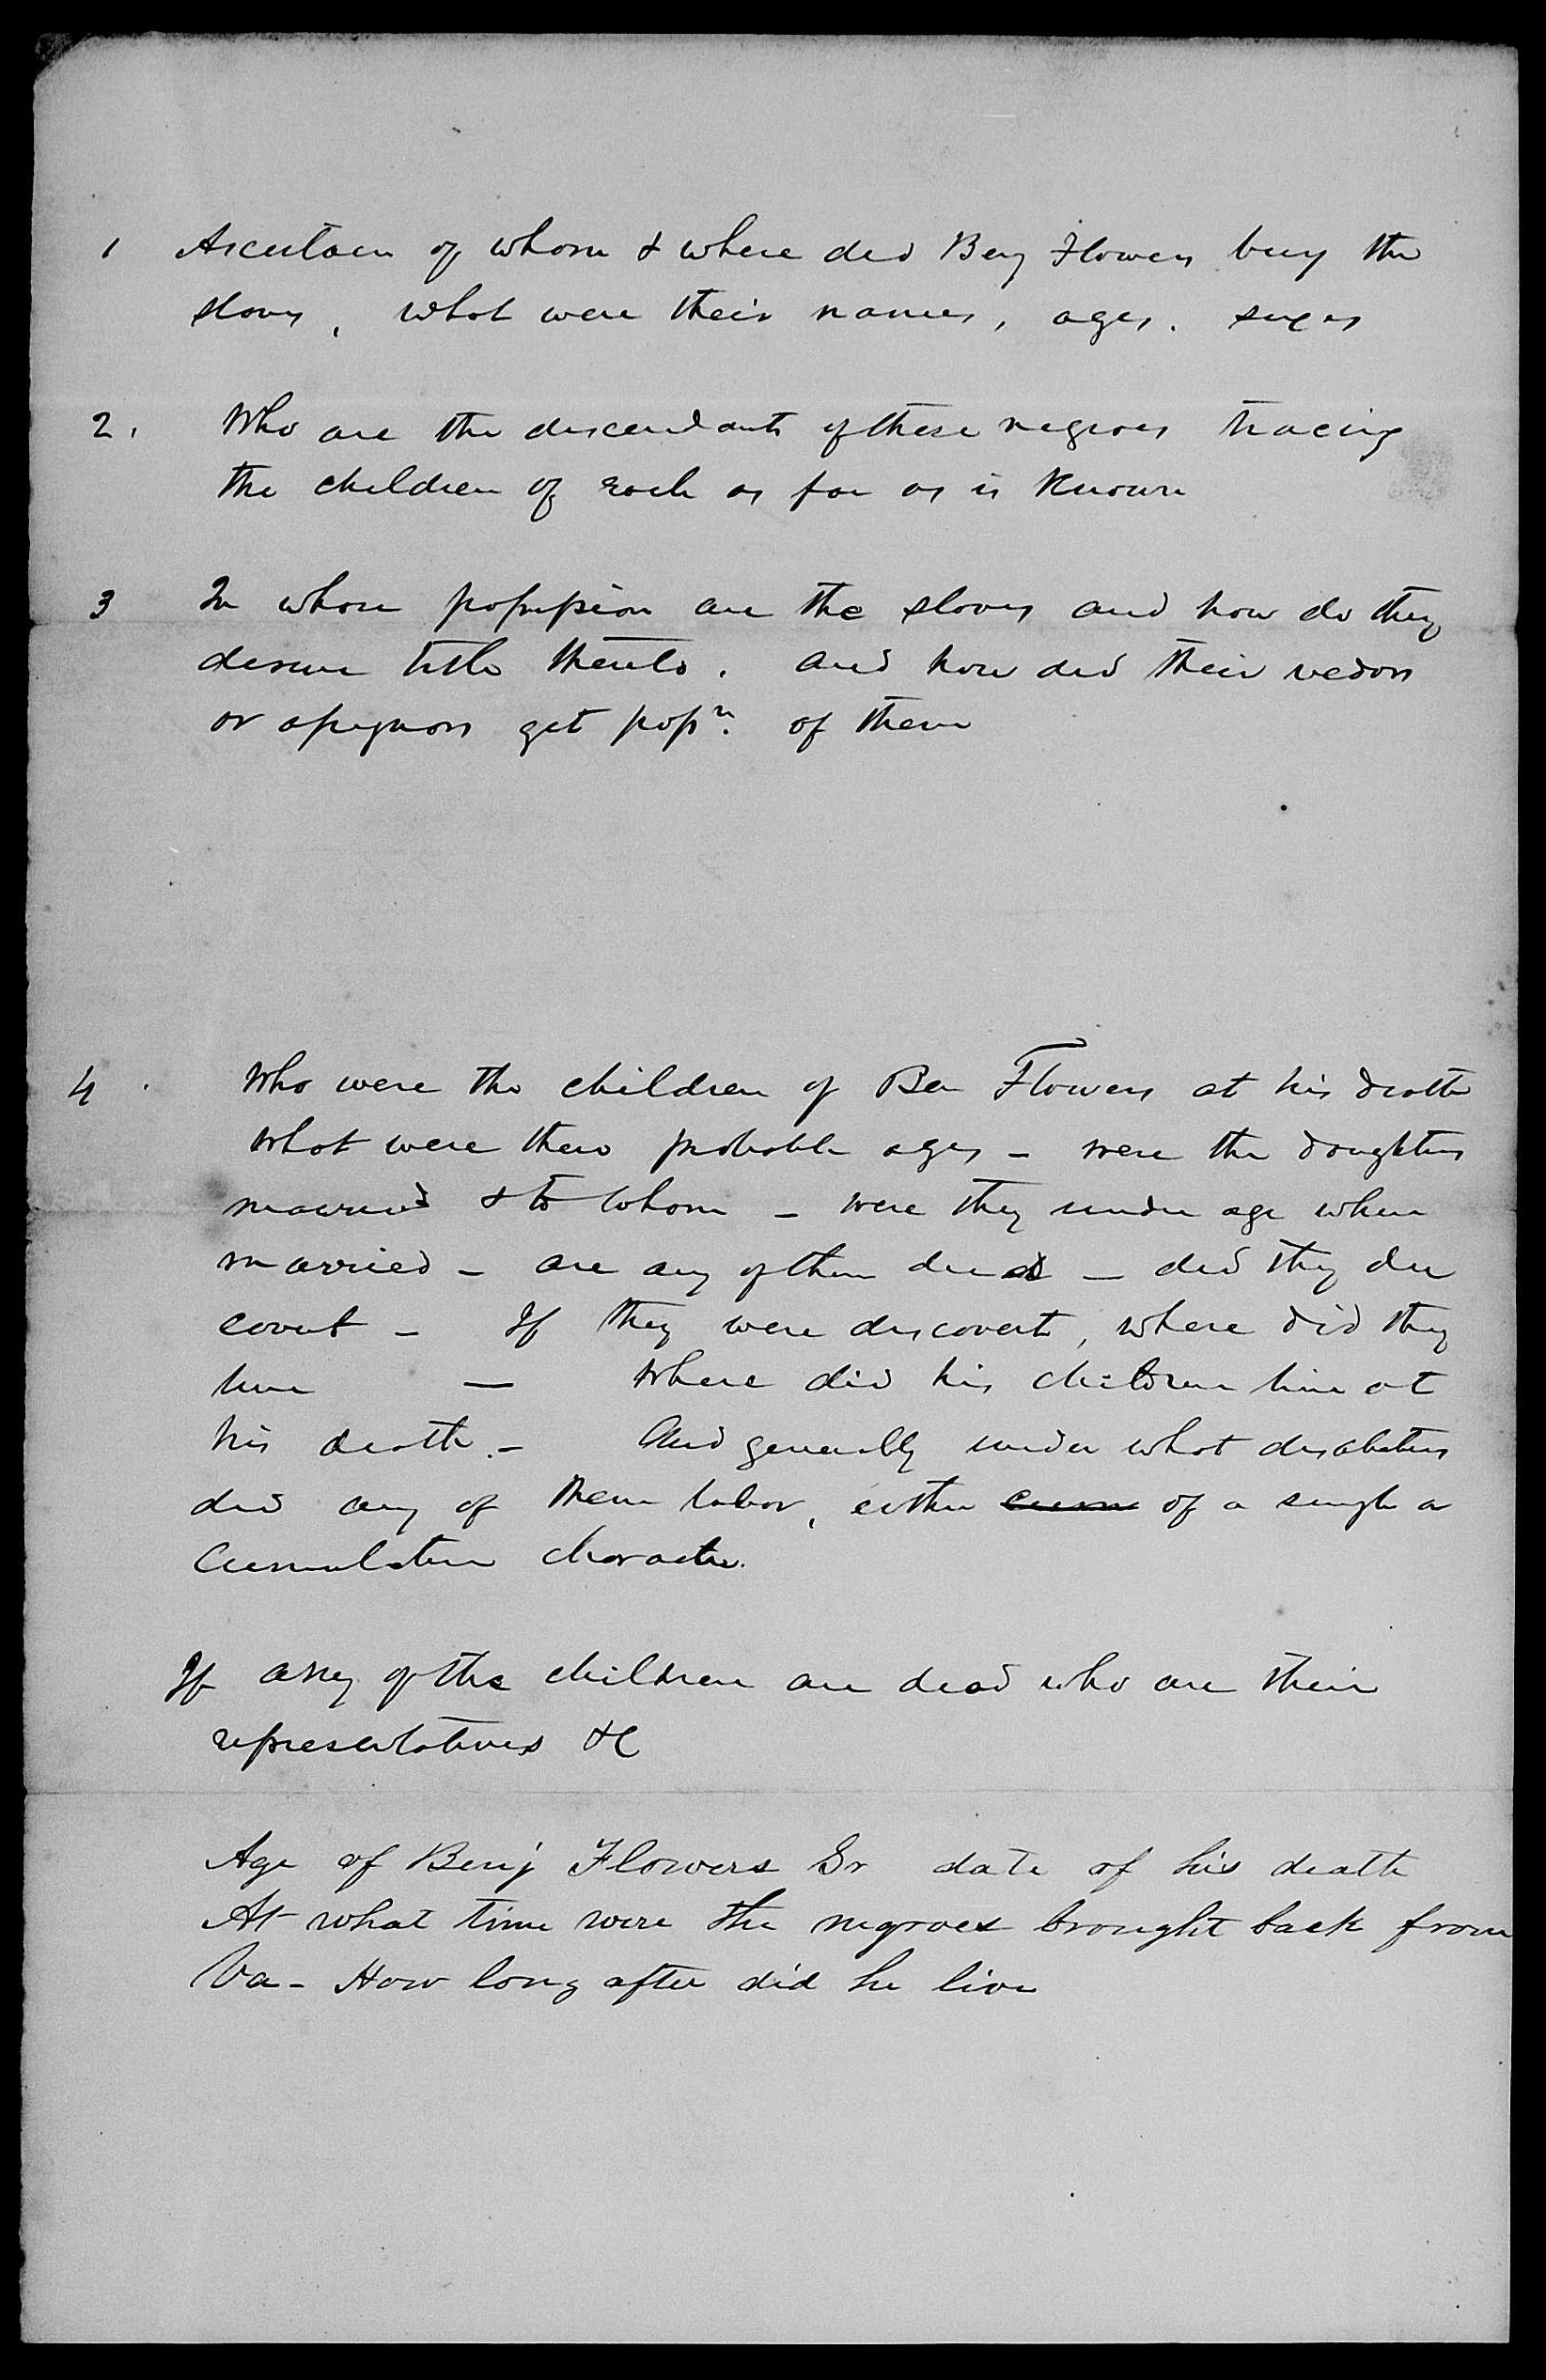 1 Ascertain of whom & where did Benj Flowers buy the
slaves, what were their names, ages. sexes
2. Who are the descendants of these negroes tracing
the children of each as far as is known
3 In whose possession are the slaves and how do they
derive title thereto. And how did their vedors
or assignors get possn. of them
4. Who were the children of Ben Flowers at his death
What were their probable ages - were the daughters
married & to whom - were they under age when
married - are any of them dead - did they die
covert - If they were discovert, where did they
live - Where did his children live at
his death. - And generally under what disabilities
did any of them labor, either cum of a single or
Cumulative character.
If any of the children are dead who are their
representatives &C
Age of Benj Flowers Sr date of his death
At what time were the negroes brought back from
Va - How long after did he live